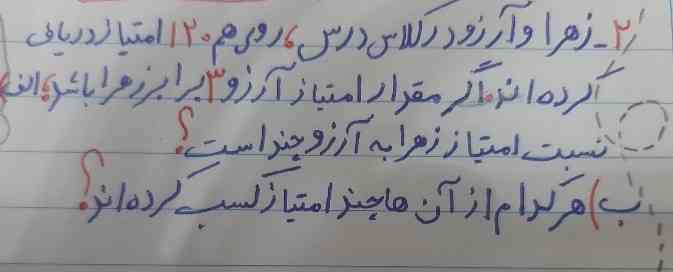 ۲ـ زهرا و آرزو در کلاس درس، روی هم ۱۲۰ امتیاز دریافت
کرده اند. اگر مقدار امتیاز آرزو ۳ برابر زهرا باشد، الف)
نسبت امتیاز زهرا به آرزو چند است؟
ب) هر کدام از آن ها چند امتیاز کسب کرده اند؟